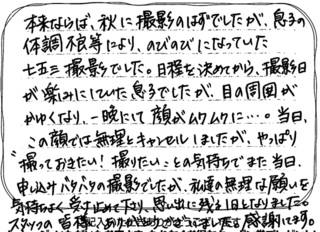 本来ならば、秋に撮影のはずでしたが、息子の
体調不良等により、のびのびになっていた
七五三撮影でした。日程を決めてから、撮影日
が楽みにしていた息子でしたが、目の周囲が
かゆくなり、一晩にして顔がムクムクに…。当日、
この顔では無理とキャンセルしましたが、やっぱり
"撮っておきたい!撮りたい"との気持ちでまた当日、
申し込みバタバタの撮影でしたが、私達の無理な願いを
気持ちよく受け止めて下り、思い出に残る1日となりました。
スタッフの皆様にありがとうございました&感謝してます。